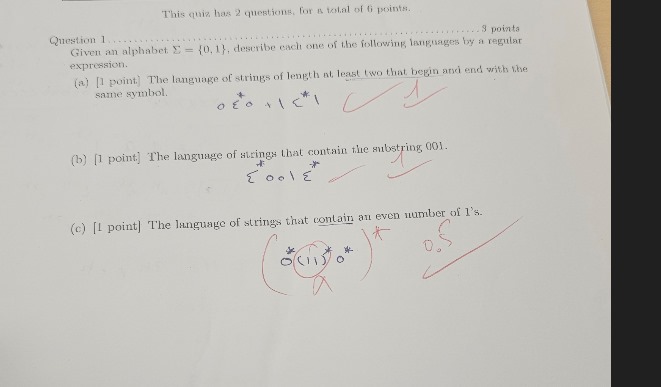 This quiz has 2 questions, for a total of 6 points.
Question 1 . . . . . . . . . . . . . . . . . . . . . . . . . . . . . . . . . . . . . . . . 3 points
Given an alphabet Σ = {0, 1}, describe each one of the following languages by a regular
expression.
(a) [1 point] The language of strings of length at least two that begin and end with the
same symbol.
0Σ*0 + 1Σ*1
1
(b) [1 point] The language of strings that contain the substring 001.
Σ*001Σ*
1
(c) [1 point] The language of strings that contain an even number of 1's.
(0*(11)*0*)*
0.5